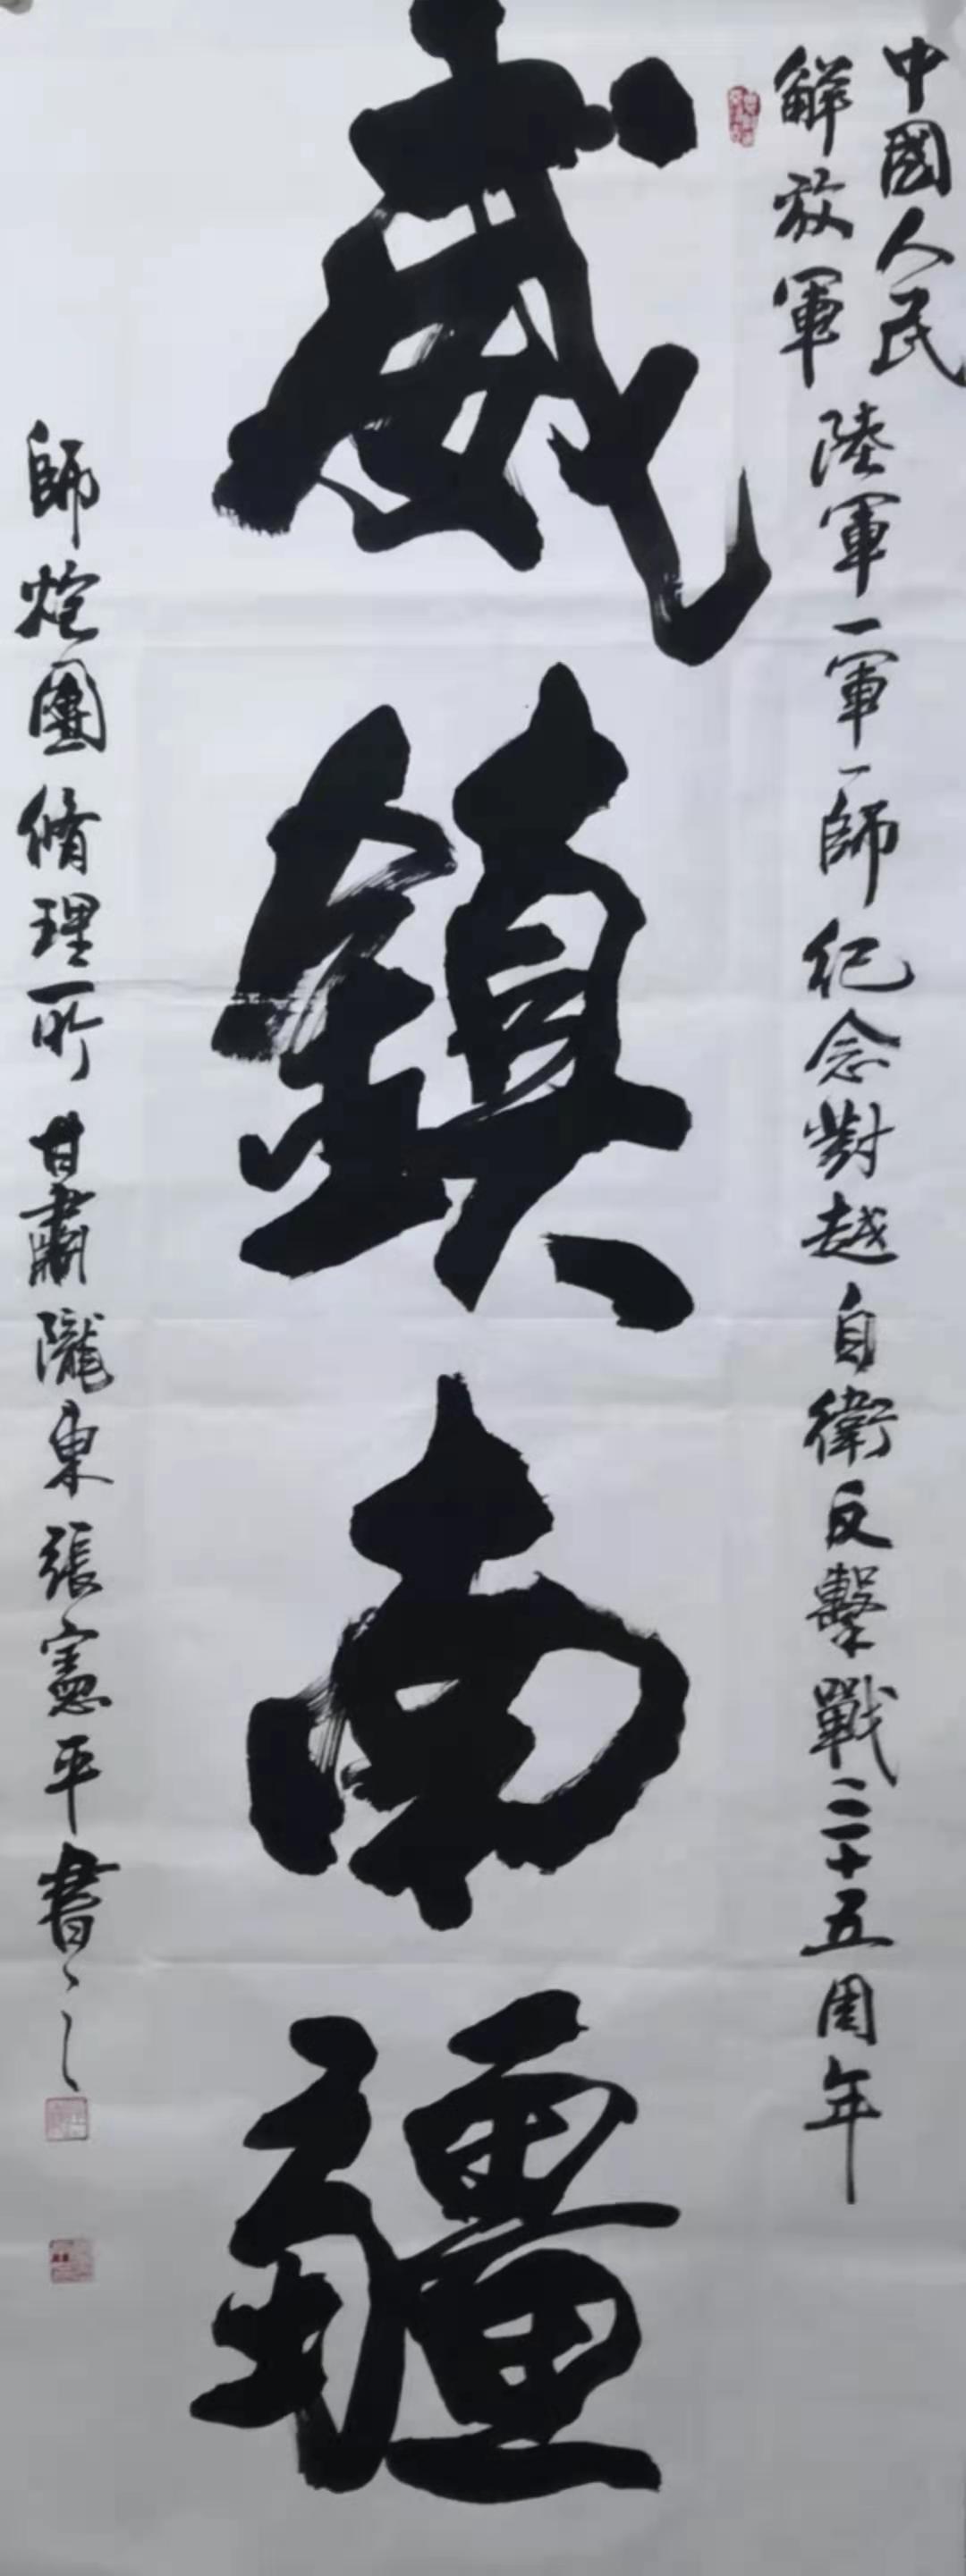 中國人民
觧放軍
陸軍一軍一師紀念對越自衛反擊戰三十五周年
威鎮南疆
師炮團脩理所甘肅隴東張憲平書之